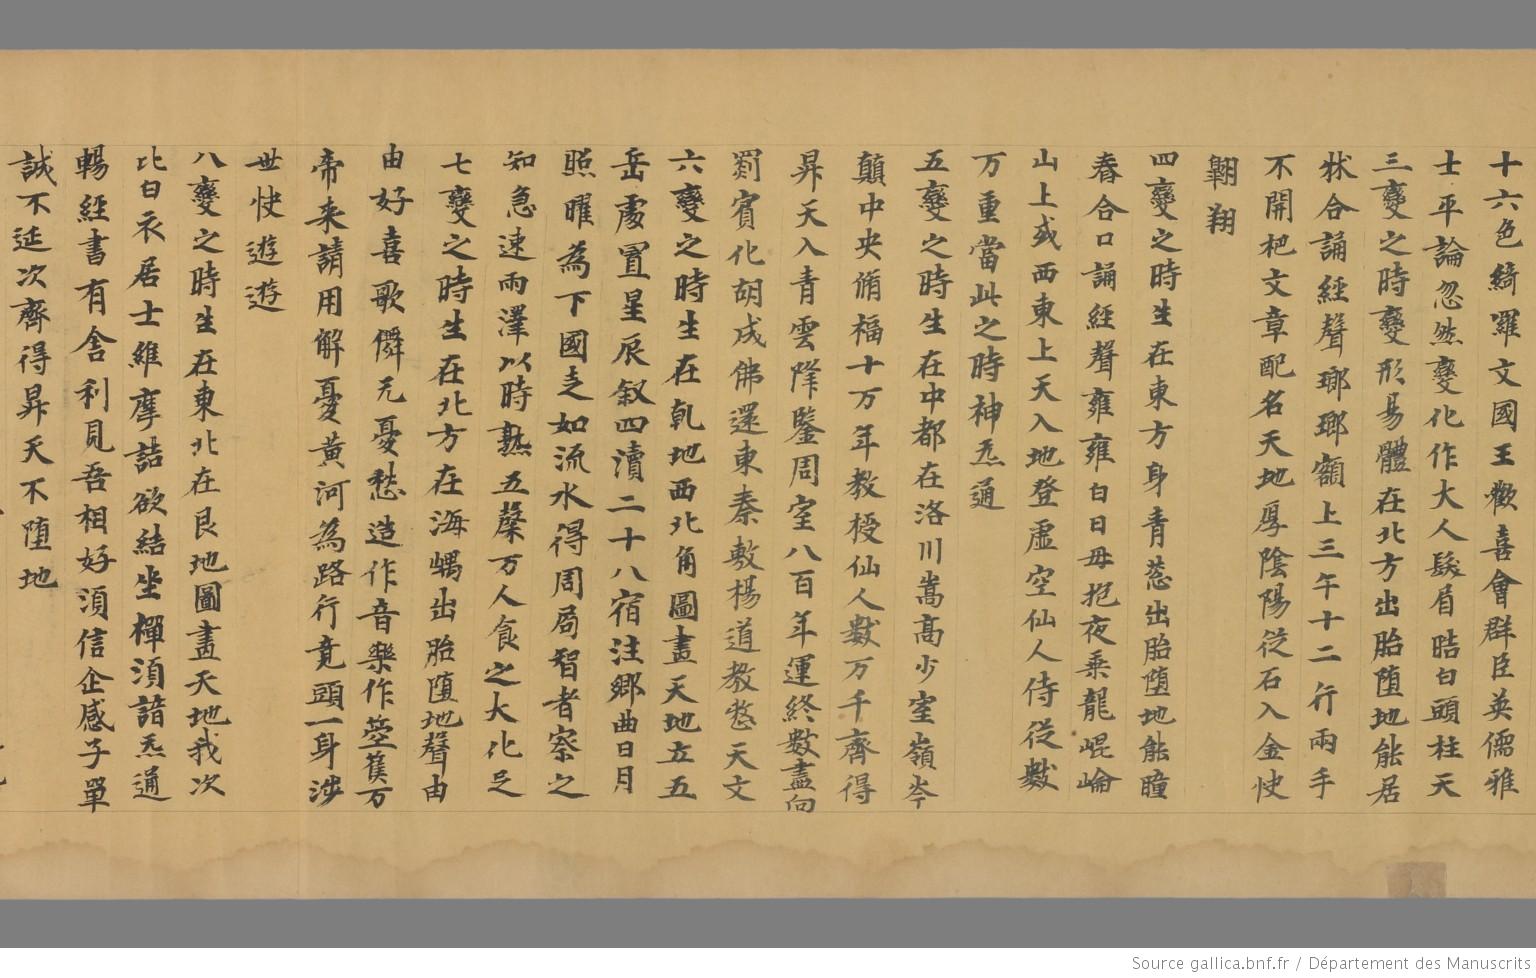 十六色綺羅文國王歡喜會群臣英儒雅
士平論忽然變化作大人髮眉晧白頭柱天
三變之時變形易體在北方出胎墮地能居
牀合誦經聲瑯瑯額上三午十二行兩手
不開把文章配名天地厚陰陽從石入金快
翱翔
四變之時生在東方身青葱出胎墮地能瞳
舂合口誦經聲雍雍白日毋抱夜乘龍崐崘
山上或西東上天入地登虛空仙人侍從數
万重當此之時神炁通
五變之時生在中都在洛川嵩高少室嶺岑
顛中央脩福十万年教授仙人數万千齊得
昇天入青雲降鑒周室八百年運終數盡向
罽賓化胡成佛還東秦敷楊道教整天文
六變之時生在乹地西北角圖畫天地立五
岳處置星辰叙四瀆二十八宿注鄉曲日月
照曜為下國走如流水得周局智者察之
知急速雨澤以時熟五糳万人食之大化足
七變之時生在北方在海嵎出胎墮地聲由
由好喜歌儛无憂愁造作音樂作箜篌万
帝来請用解憂黄河為路行竟頭一身涉
世快遊遊
八變之時生在東北在艮地圖畫天地我次
比白衣居士維摩詰欲結坐禪須諳炁通
暢經書有舎利見吾相好須信企感子單
誠不延次齊得昇天不墮地
Source gallica.bnf.fr / Département des Manuscrits